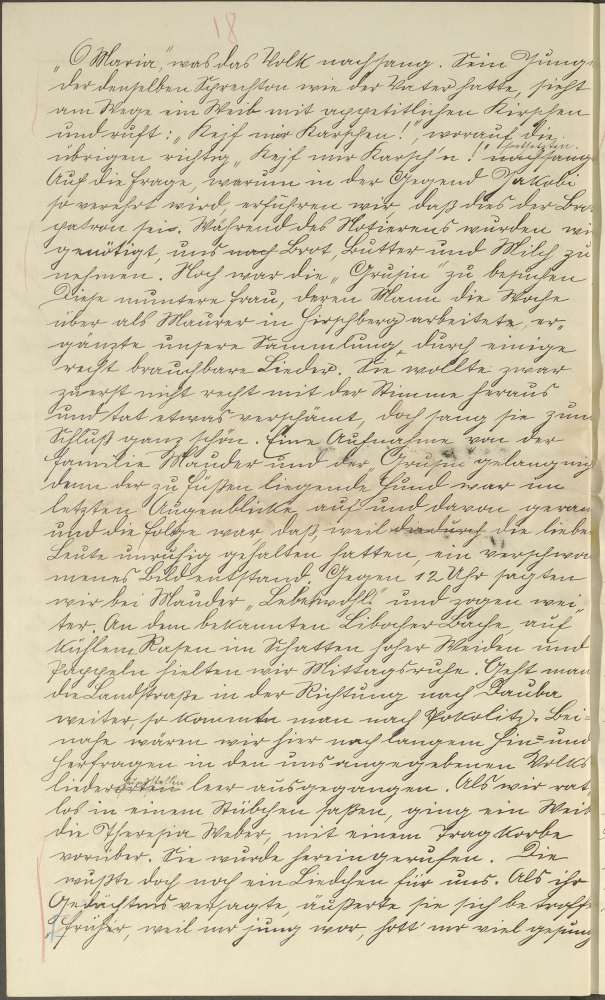 18
„O Maria", was das Volk nachsang. Sein Junge
der denselben Sprechton wie der Vater hatte, sieht
am Wege ein Weib mit appetitlichen Kirschen
und ruft: „Kejf mir Karschen!", worauf die
übrigen richtig „Kejf mir Karsch'n!" nachsang
Auf die Frage, warum in der Gegend Jakobi
so verehrt wird, erfuhren wir, daß dies der
patron sei. Während des Notierens wurden wi
genötigt, uns noch Brot, Butter und Milch zu
nehmen. Noch war die „Grusin" zu besuchen
Diese muntere Frau, deren Mann die Woche
über als Maurer in Hirschberg arbeitete, er-
gänzte unsere Sammlung durch einige
recht brauchbare Lieder. Sie wollte zwar
zuerst nicht recht mit der Stimme heraus
und tat etwas verschämt, doch sang sie zum
Schluß ganz schön. Eine Aufnahme von der
Familie Mauder und der „Grusin" gelang nich
denn der zu Füßen liegende Hund war im
letzten Augenblicke auf und davon geran
und die Folge war, daß, weil dadurch die liebe
Leute unruhig gehalten hatten, ein verschwo
menes Bild entstand. Gegen 12 Uhr sagten
wir bei Mauder „Lebewohl" und zogen wei
ter. An dem bekannten Libocher Bache, auf
kühlem Rasen im Schatten hoher Weiden und
Pappeln hielten wir Mittagsruhe. Geht man
die Landstraße in der Richtung nach Dauba
weiter, so kommt man nach Pokolitz. Bei-
nahe wären wir hier nach langem Hin= und
Herfragen in den uns angegebenen Volks
lieder leer ausgegangen. Als wir rat
los in einem Stübchen saßen, ging ein Weib
die Theresia Weber, mit einem Tragkorbe
vorüber. Sie wurde hereingerufen. Die
wußte doch noch ein Liedchen für uns. Als ihr
Gedächtnis versagte, äußerte sie sich betroff
„Früher, weil mr jung wor, hott mr viel gesung